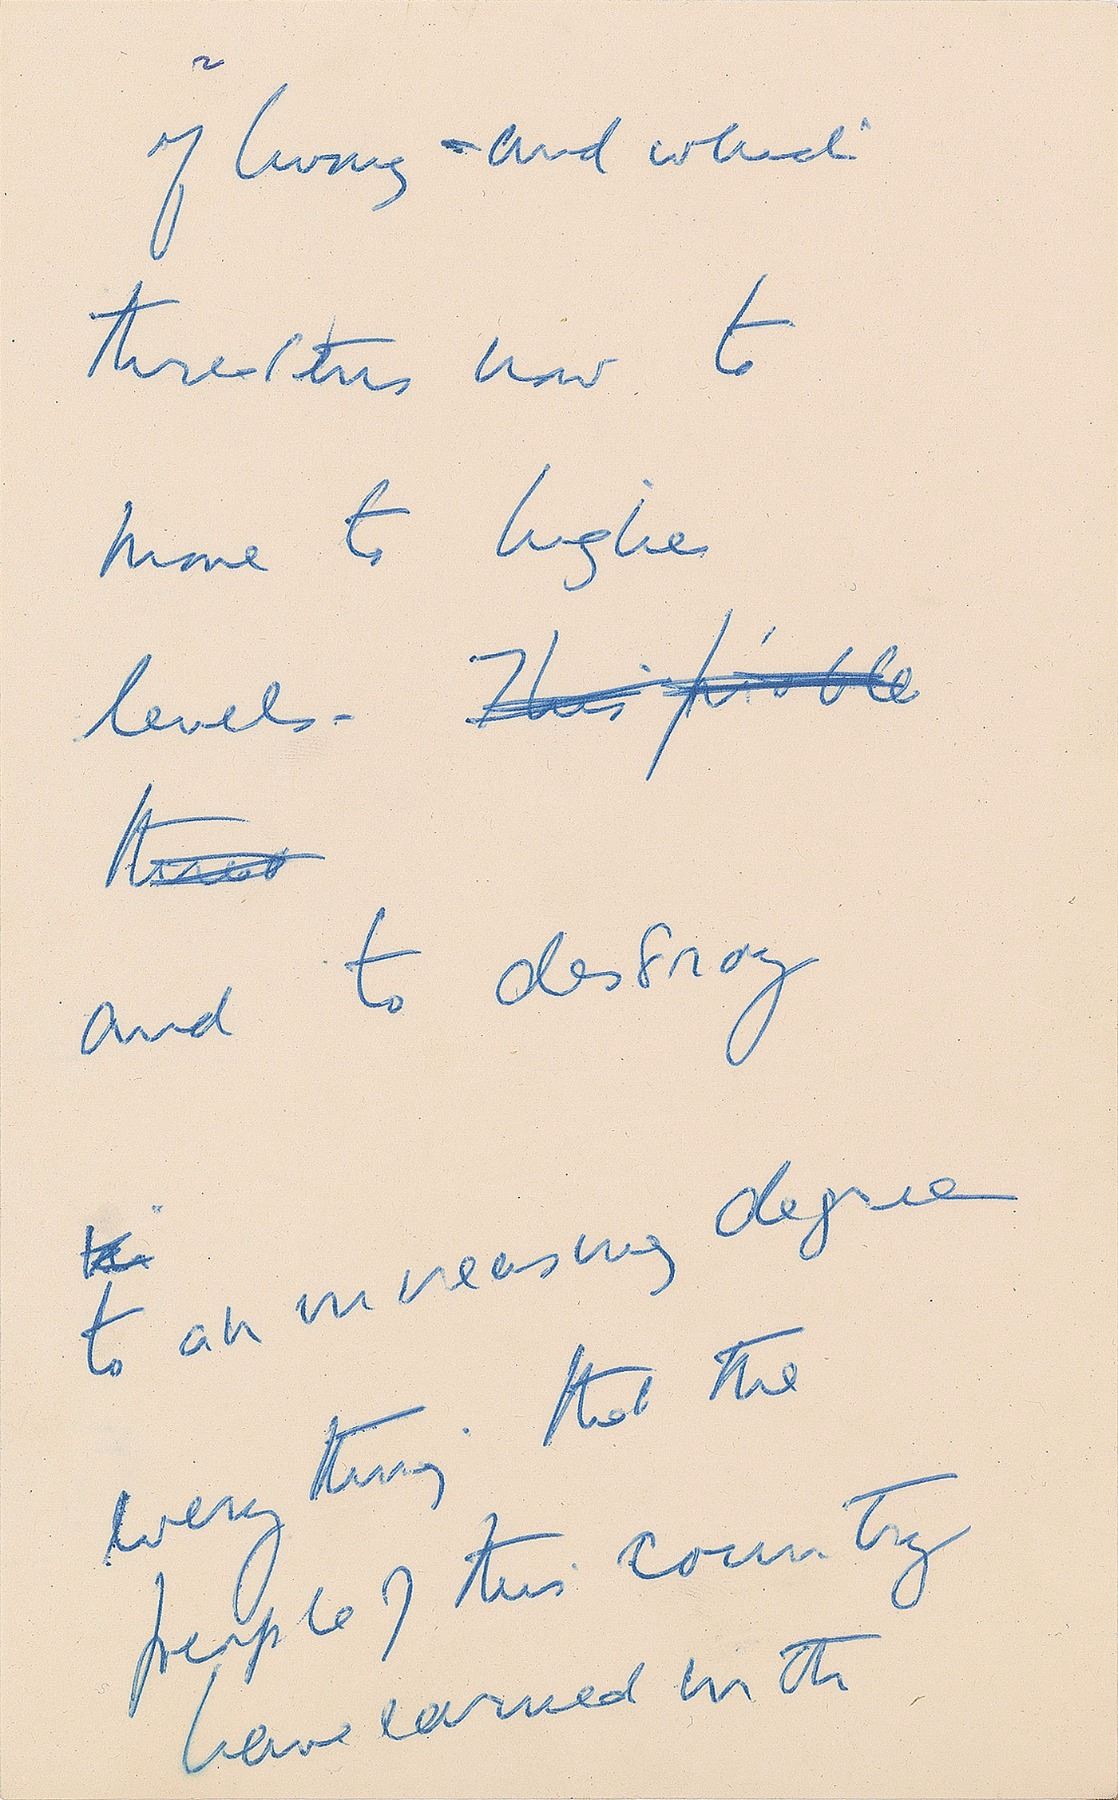 2
of living - and which
threatens now to
move to higher
levels. This possible
threat
and to destroy
to an increasing degree
every thing that the
people of this country
have earned in th